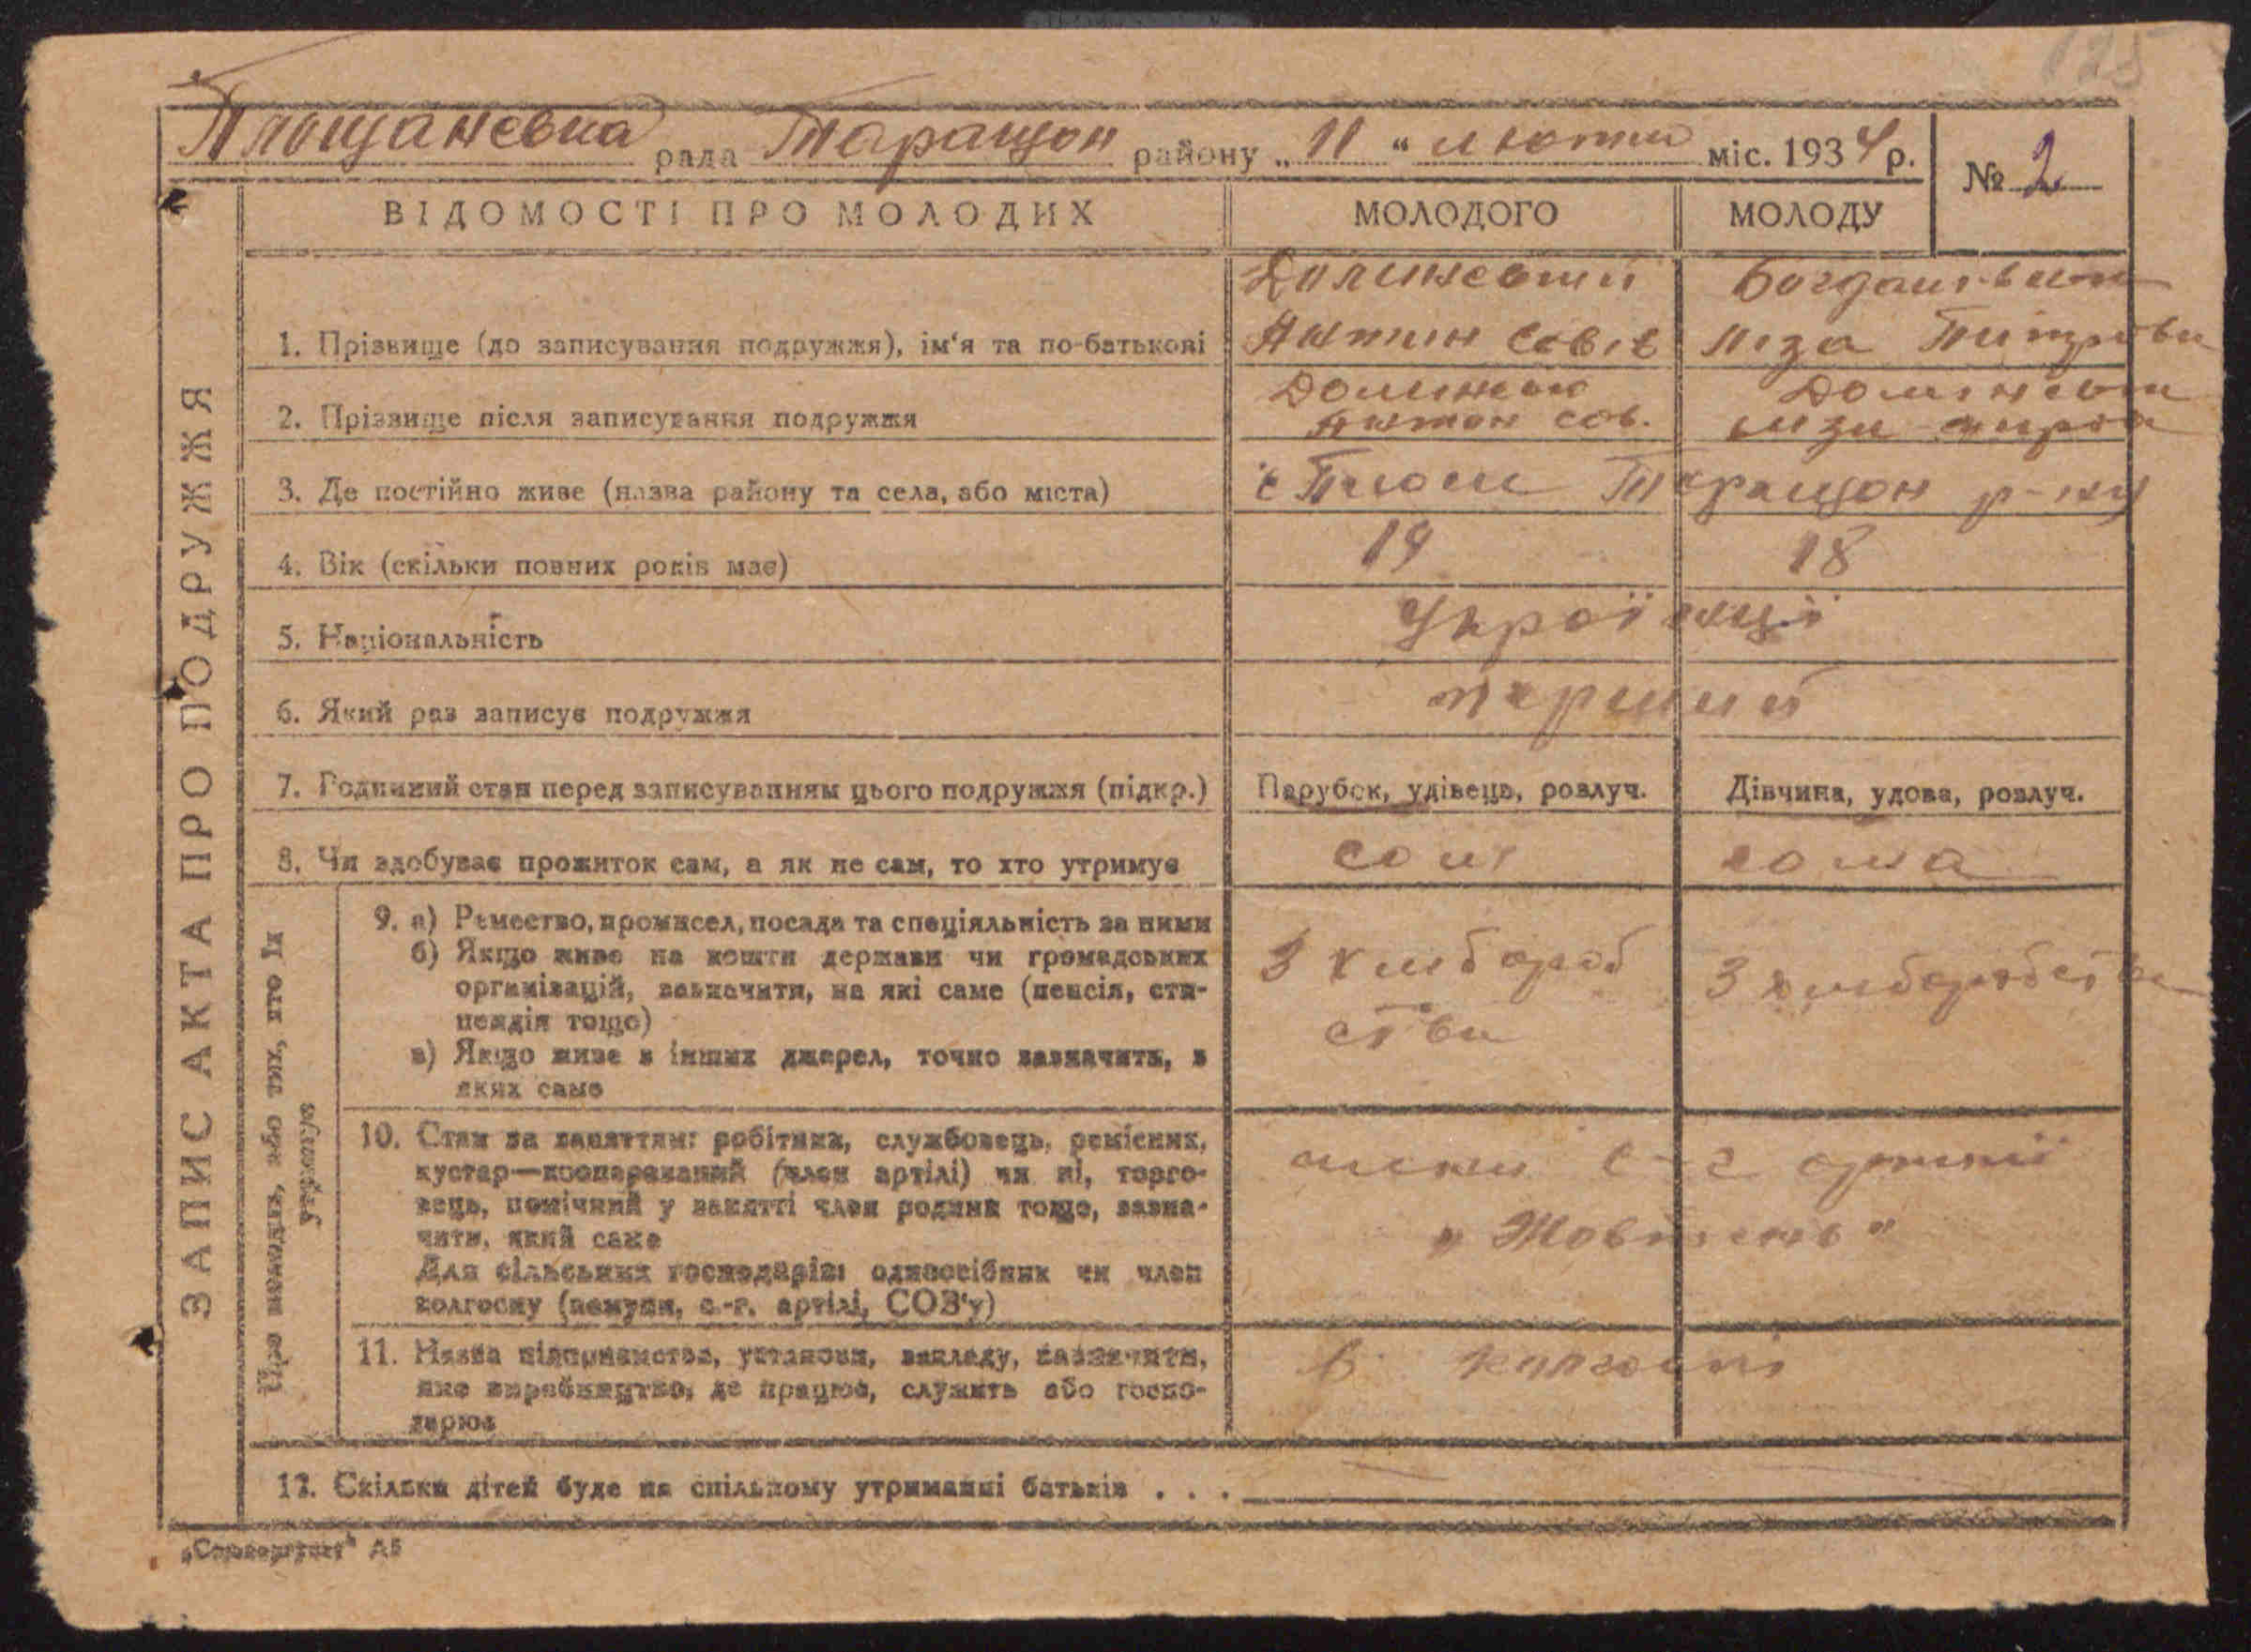 125
рада Таращон району „ 11 “ лютого міс. 1934 р.
№ 2
ЗАПИС АКТА ПРО ПОДРУЖЖЯ
ВІДОМОСТІ ПРО МОЛОДИХ
МОЛОДОГО
МОЛОДУ
1. Прізвище (до записування подружжя), ім‘я та по-батькові
Антин Савів
Ліза
2. Прізвище після записування подружжя
Антон Сав.
3. Де постійно живе (назва району та села, або міста)
Таращон р-ну
4. Вік (скільки повних років має)
19
18
5. Національність
Українці
6. Який раз записує подружжя
перший
7. Родинний стан перед записуванням цього подружжя (підкр.)
Парубок, удівець, розлуч.
Дівчина, удова, розлуч.
8. Чи здобуває прожиток сам, а як не сам, то хто утримує
сам
сама
Про молодих, або тих, хто їх
утримує
9. а) Ремество, промисел, посада та спеціяльність за ними
б) Якщо живе на кошти держави чи громадських
організацій, зазначити, на які саме (пенсія, сти-
пендія тощо)
в) Якщо живе з інших джерел, точно зазначить, з
яких саме
З хлібороб
ства
З хліборобства
10. Стан за заняттям: робітник, службовець, ремісник,
кустар—кооперований (член артілі) чи ні, торго-
вець, помічний у занятті член родини тощо, зазна-
чити, який саме
Для сільських господарів: одноосібник чи член
колгоспу (комуни, с.-г. артілі, СОЗ‘у)
члени С-г артілі
„ Жовтень “
11. Назва підприємства, установи, закладу, зазначити,
яке виробництво, де працює, служить або госпо-
дарює
в колгоспі
12. Скільки дітей буде на спільному утриманні батьків . . .
А5